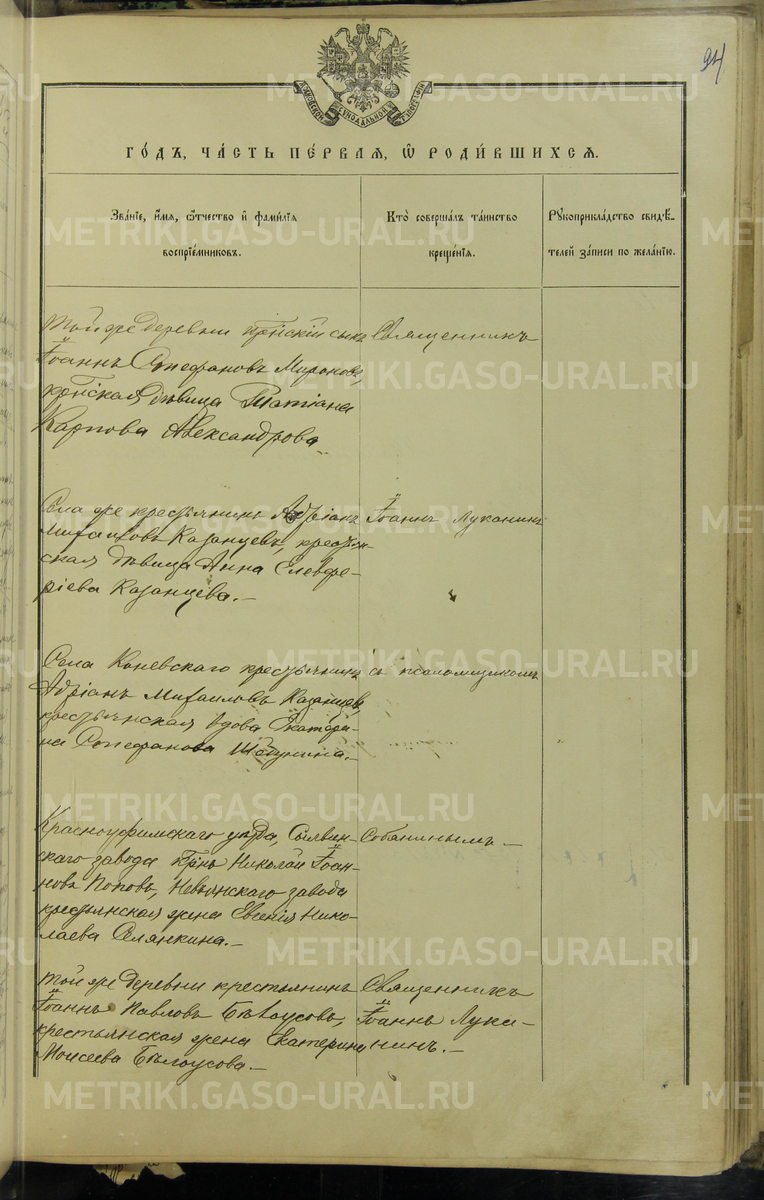 94
МОСКОВСКОЙ СѴНОДАЛЬНОЙ ТѴПОГРАФІИ
ГОДЪ, ЧАСТЬ ПЕРВАЯ, Ѡ РОДИВШИХСЯ.
Званіе, имя, ѿчество и фамилія
воспріемниковъ.
Кто совершалъ таинство
крещенія.
Рукоприкладство свидѣ-
телей записи по желанію.
Той же деревни кртнскій сынъ
Іоаннъ Стефановъ Мироновъ,
кртнская дѣвица Татіана
Карпова Александрова
Священникъ
Села же крестьянинъ Адріанъ
Михаиловъ Казанцевъ, крестьян-
ская дѣвица Анна Елевфе-
ріева Казанцева.—
Іоаннъ Луканинъ
Села Коневскаго крестьянинъ
Адріанъ Михаиловъ Казанцевъ,
крестьянская вдова Екатери-
на Стефанова Шабунина.—
съ псаломщикомъ
Красноуфимскаго уѣзда, Сылвин-
скаго завода крнъ Николай Іоан-
новъ Поповъ, Невьянскаго завода
крестьянская жена Евгенія Нико-
лаева Селянкина.—
Собанинымъ.—
Той же деревни крестьянинъ
Іоаннъ Павловъ Бѣлоусовъ,
крестьянская жена Екатерина
Моисеева Бѣлоусова.—
Священникъ
Іоаннъ Лука-
нинъ.—
METRIKI.GASO-URAL.RU